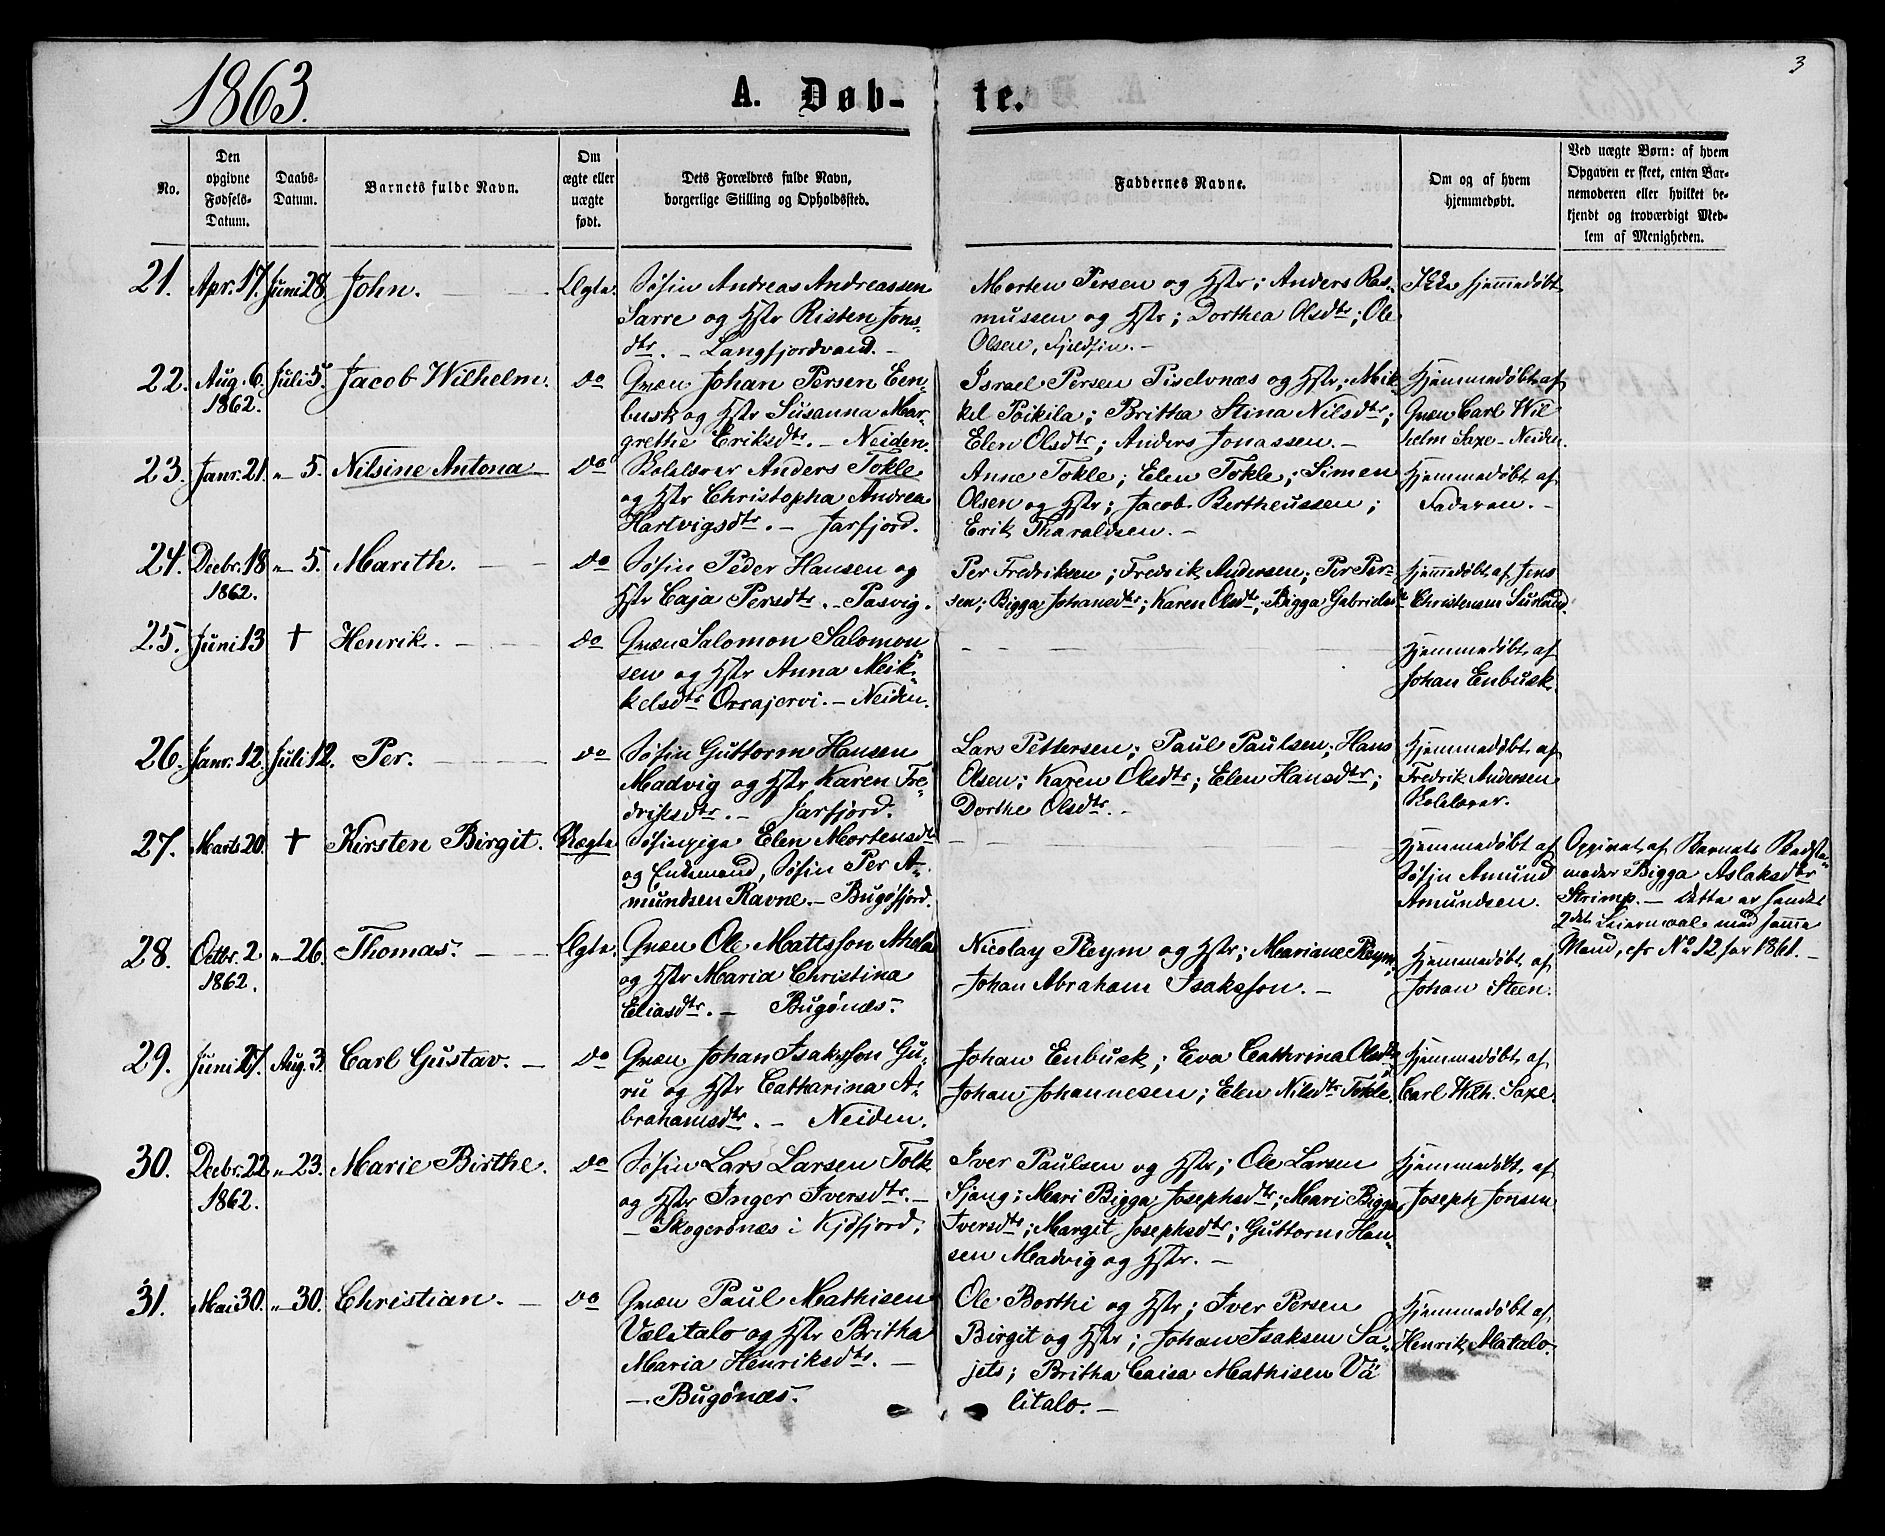 3
1863.
A. Døb-
te.
No.
Den
opgivne
Fødsels-
Datum.
Daabs-
Datum.
Barnets fulde Navn.
Om
ægte eller
uægte
født.
Dets Forældres fulde Navn,
borgerlige Stilling og Opholdssted.
Faddernes Navne.
Om og af hvem
hjemmedøbt.
Ved uægte Børn: af hvem
Opgaven er skeet, enten Bar-
nemoderen eller hvilket be-
kjendt og troværdigt Med-
lem af Menigheden.
21. Apr. 17. Juni 28. John. Ægte.
Søfin Andreas Andreassen
Sarre og Hstr Risten Jons-
dtr. - Langfjordvand. -
Morten Persen og Hstr; Anders Ras-
mussen og Hstr; Dorthea Olsdtr; Ole
Olsen, Fjeldfin. -
Ikke hjemmedøbt
22. Aug. 6. Juli 5. Jacob Wilhelm. do
1862.
Qvæn Johan Persen Een-
busk og Hstr Susanna Mar-
grethe Eriksdtr. - Neiden.
Israel Persen Piselvnæs og Hstr; Mik-
kel Poikila; Britha Stina Nilsdtr;
Elen Olsdtr; Anders Jonassen. -
Hjemmedøbt af
Qvæn Carl Wil
helm Saxe - Neiden.
23. Janr. 21. " 5. Nilsine Antona - do
Skolelærer Anders Tokle
og Hstr Christopha Andrea
Hartvigsdtr. - Jarfjord.
Anne Tokle; Elen Tokle; Simen
Olsen og Hstr; Jacob Bertheussen;
Erik Tharaldsen. -
Hjemmedøbt af
Faderen. -
24. Decbr. 18 " 5. Marith. do
1862.
Søfin Peder Hansen og
Hstr Caja Persdtr. - Pasvig.
Per Fredriksen; Fredrik Andersen; Per Per-
sen; Bigga Johansdtr; Karen Olsdtr; Bigga Gabrielsdtr
Hjemmedøbt af Jens
Christensen
25. Juni 13 † Henrik. do
Qvæn Salomon Salomon
sen og Hstr Anna Mik-
kelsdtr Orrajervi. - Neiden.
Hjemmedøbt af
Johan Enbusk.
26. Janr. 12. Juli 12. Per. do
Søfin Guttorm Hansen
Madvig og Hstr Karen Fre-
driksdtr. - Jarfjord.
Lars Pettersen; Paul Paulsen; Hans
Olsen; Karen Olsdtr; Elen Hansdtr;
Dorthe Olsdtr. -
Hjemmedøbt af
Fredrik Andersen
Skolelærer.
27. Marts 20. † Kirsten Birgit. Uægte.
Søfinpige Elen Mortensdtr
og Enkemand, Søfin Per A-
mundsen Ravne. - Bugøfjord.
Hjemmedøbt af
Søfin Amund
Amundsen.
Opgivet af Barnets Bedste-
moder Bigga Aslaksdtr
Strimp. - Dette er hendes
2det Leiermaal med samme
Mand, cfr No 12 for 1861. -
28. Octbr. 2 " 26. Thomas. Ægte.
1862.
Qvæn Ole Mattsson Ahola
og Hstr Maria Christina
Eliasdtr. - Bugønæs. -
Nicolay Pleym og Hstr; Mariane Pleym;
Johan Abraham Isaksson. -
Hjemmedøbt af
Johan Steen.
29. Juni 27. Aug. 3. Carl Gustav. - do
Qvæn Johan Isaksson Gu-
ru og Hstr Catharina A-
brahamsdtr. - Neiden.
Johan Enbusk; Eva Cathrina Olsdtr;
Johan Johannesen; Elen Nilsdtr Tokle.
Hjemmedøbt af
Carl Wilh. Saxe.
30. Decbr. 22 " 23. Marie Birthe. do
1862.
Søfin Lars Larsen Tolk
og Hstr Inger Iversdtr. -
- Skogerønæs i Kjøfjord.
Iver Paulsen og Hstr; Ole Larsen
Sjang; Mari Bigga Josephsdtr; Mari Bigga
Iversdtr; Margit Josephsdtr; Guttorm Han-
sen Madvig og Hstr. -
Hjemmedøbt af
Joseph Jonsen
31. Mai 30. " 30. Christian. - do
Qvæn Paul Mathisen
Välitalo og Hstr Britha
Maria Henriksdtr. -
- Bugønæs. -
Ole Borthi og Hstr; Iver Persen
Birgit og Hstr; Johan Isaksen Sa-
jets; Britha Caisa Mathisen Vä
litalo. -
Hjemmedøbt af
Henrik Matalo.